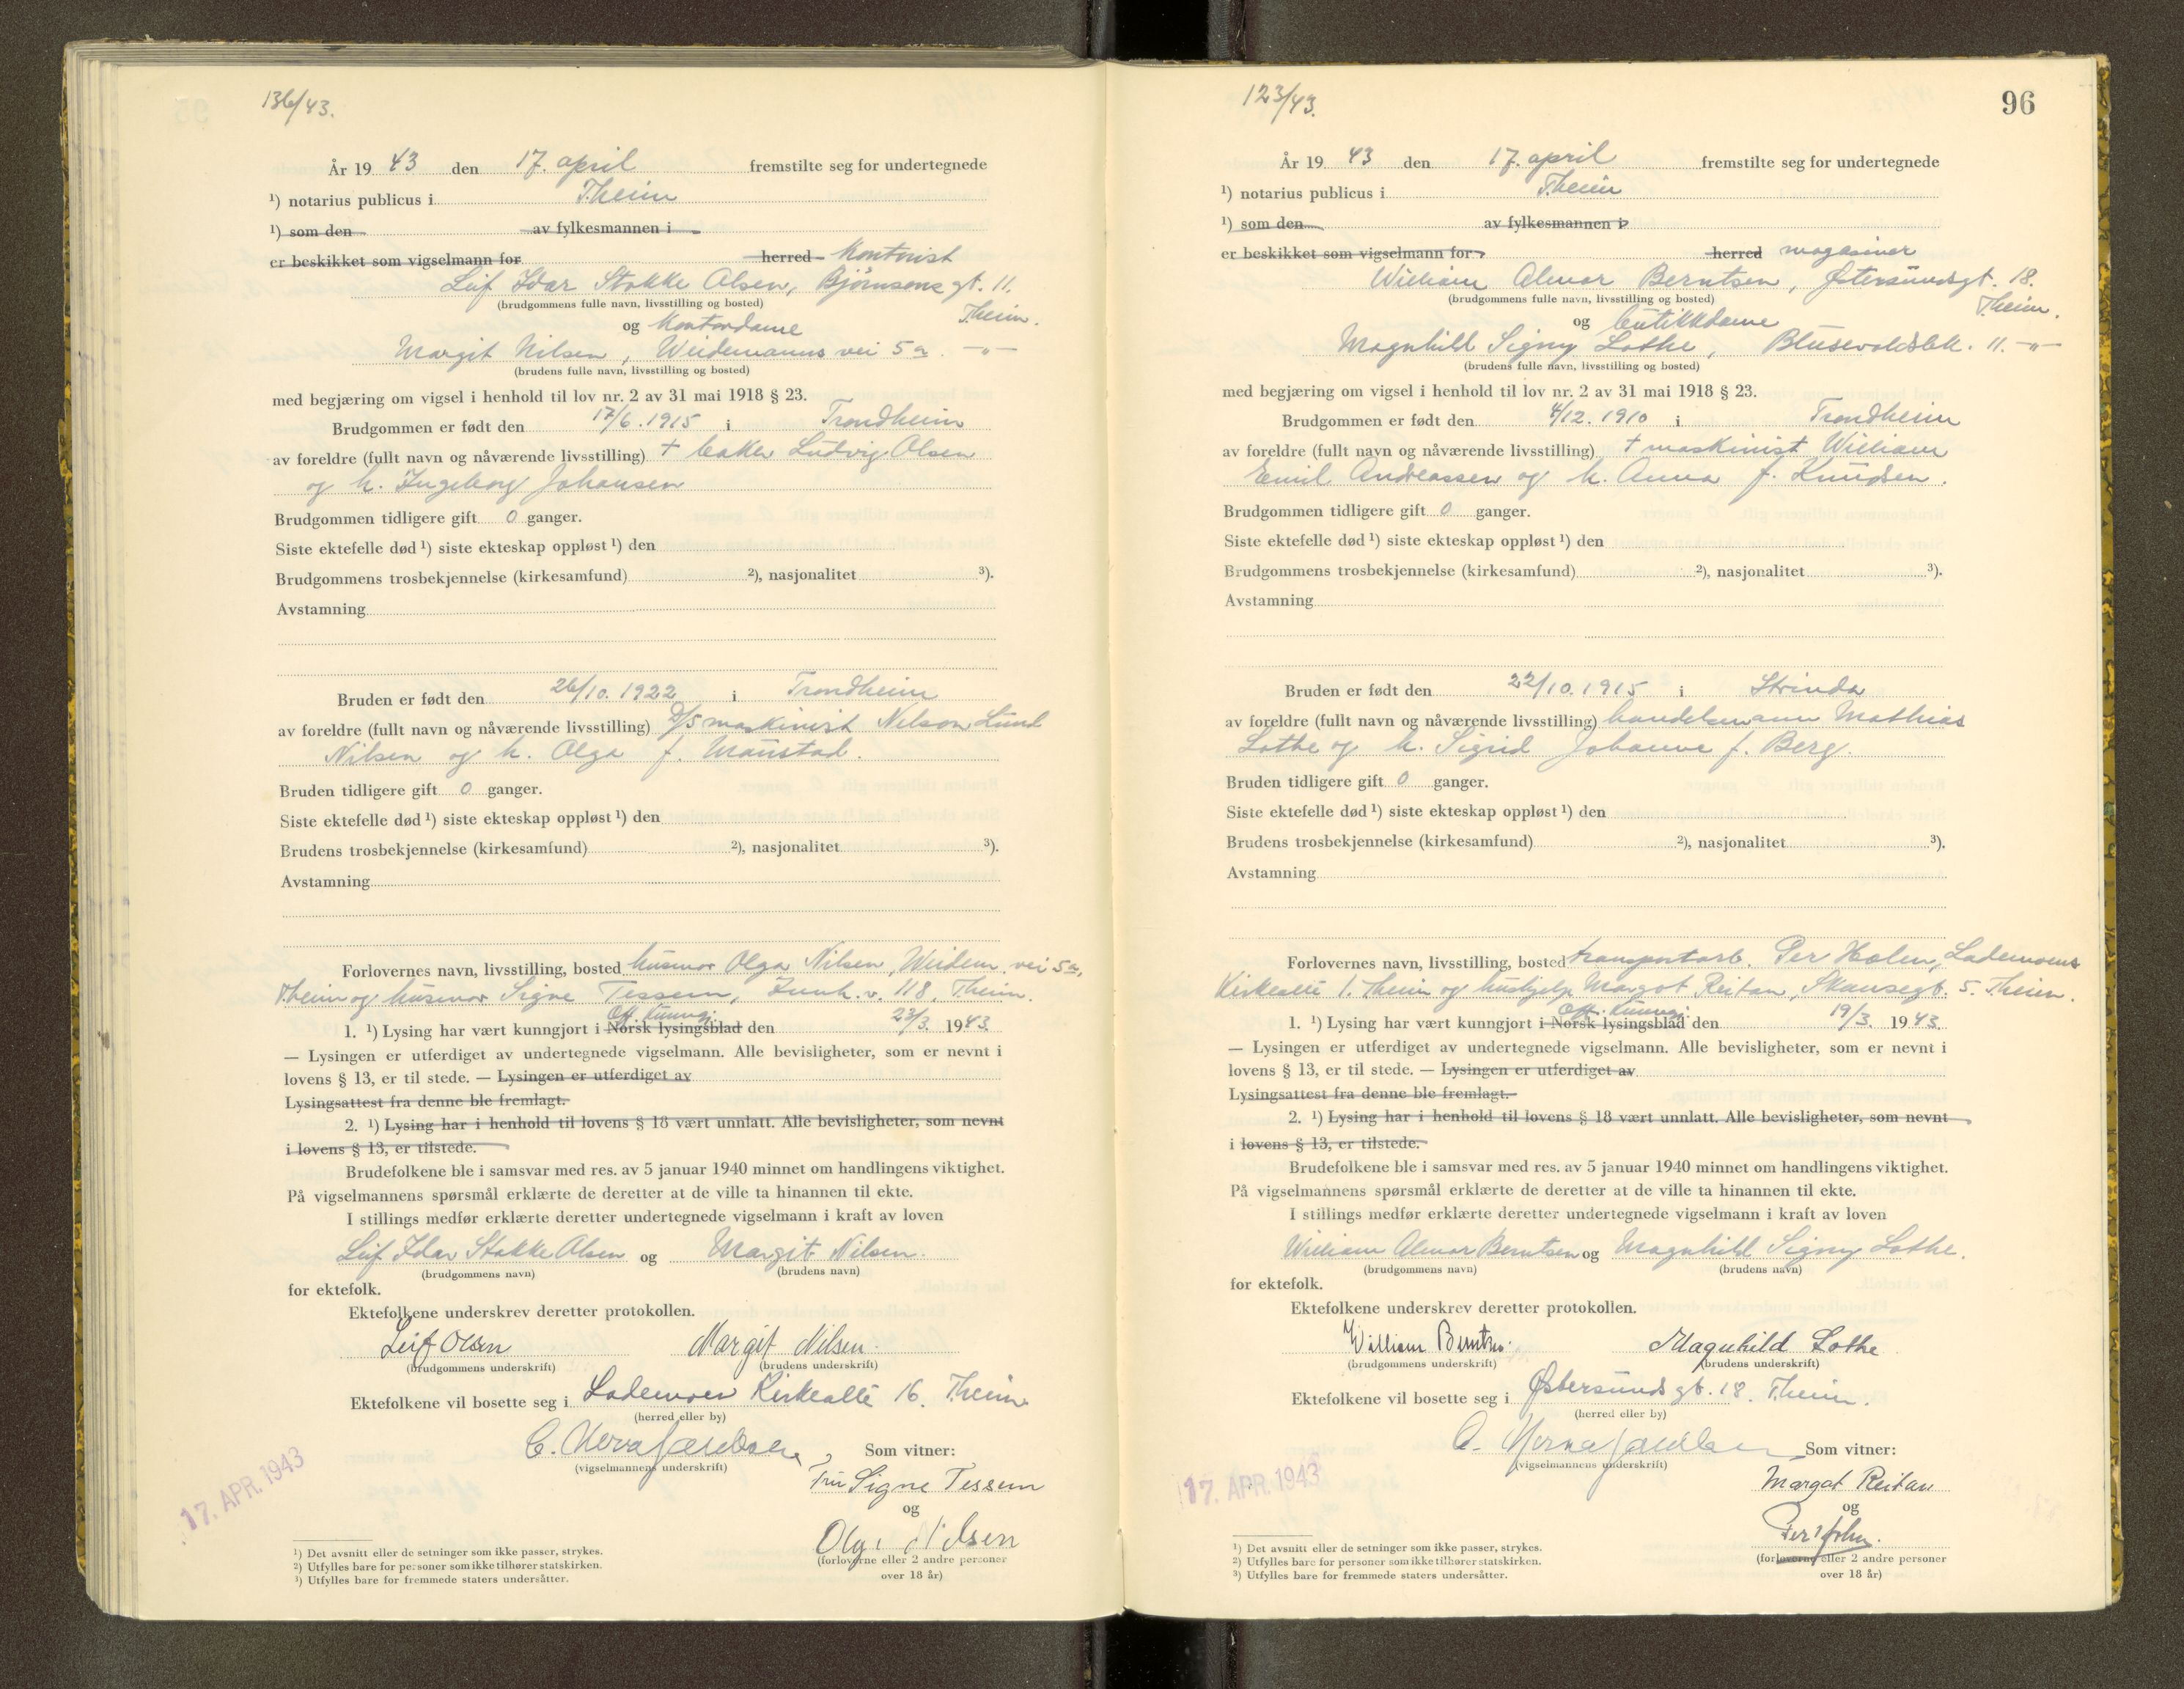 136/43.
År 19 43 den 17. april fremstilte seg for undertegnede
¹) notarius publicus i T.heim
¹) som den av fylkesmannen i
er beskikket som vigselmann for herred kontorist
Leif Idar Stokke Olsen, Bjørnsons gt. 11.
(brudgommens fulle navn, livsstilling og bosted) T.heim.
og kontordame
Margit Nilsen, Weidemanns vei 5a. —"—
(brudens fulle navn, livsstilling og bosted)
med begjæring om vigsel i henhold til lov nr. 2 av 31 mai 1918 § 23.
Brudgommen er født den 17/6. 1915 i Trondheim
av foreldre (fullt navn og nåværende livsstilling) † baker Ludvig Olsen
og h. Ingeborg Johansen
Brudgommen tidligere gift 0 ganger.
Siste ektefelle død ¹) siste ekteskap oppløst ¹) den
Brudgommens trosbekjennelse (kirkesamfund) ²), nasjonalitet ³).
Avstamning
Bruden er født den 26/10. 1922 i Trondheim
av foreldre (fullt navn og nåværende livsstilling) D/S maskinist Nelson Lund
Nilsen og h. Olga f. Maustad.
Bruden tidligere gift 0 ganger.
Siste ektefelle død ¹) siste ekteskap oppløst ¹) den
Brudens trosbekjennelse (kirkesamfund) ²), nasjonalitet ³).
Avstamning
Forlovernes navn, livsstilling, bosted husmor Olga Nilsen, Weidem. vei 5a,
T.heim og husmor Signe Tessem, v. 118, T.heim.
Off. Kunngj.
1. ¹) Lysing har vært kunngjort i Norsk lysingsblad den 23/3. 1943.
— Lysingen er utferdiget av undertegnede vigselmann. Alle bevisligheter, som er nevnt i
lovens § 13, er til stede. — Lysingen er utferdiget av
Lysingsattest fra denne ble fremlagt.
2. ¹) Lysing har i henhold til lovens § 18 vært unnlatt. Alle bevisligheter, som nevnt
i lovens § 13, er tilstede.
Brudefolkene ble i samsvar med res. av 5 januar 1940 minnet om handlingens viktighet.
På vigselmannens spørsmål erklærte de deretter at de ville ta hinannen til ekte.
I stillings medfør erklærte deretter undertegnede vigselmann i kraft av loven
Leif Idar Stokke Olsen og Margit Nilsen.
(brudgommens navn) (brudens navn)
for ektefolk.
Ektefolkene underskrev deretter protokollen.
Leif Olsen Margit Nilsen
(brudgommens underskrift) (brudens underskrift)
Ektefolkene vil bosette seg i Lademoen Kirkealle 16. T.heim
(herred eller by)
Som vitner:
(vigselmannens underskrift)
17. APR. 1943
Fru Signe Tessem
og
Olga Nilsen
(forloverne eller 2 andre personer
over 18 år)
¹) Det avsnitt eller de setninger som ikke passer, strykes.
²) Utfylles bare for personer som ikke tilhører statskirken.
³) Utfylles bare for fremmede staters undersåtter.
123/43.
96
År 19 43 den 17. april fremstilte seg for undertegnede
¹) notarius publicus i T.heim
¹) som den av fylkesmannen i
er beskikket som vigselmann for herred magasiner
William Almar Berntsen, Østersundsgt. 18.
(brudgommens fulle navn, livsstilling og bosted) T.heim.
og butikkdame
Magnhild Signy Lothe, 11. —"—
(brudens fulle navn, livsstilling og bosted)
med begjæring om vigsel i henhold til lov nr. 2 av 31 mai 1918 § 23.
Brudgommen er født den 4/12. 1910 i Trondheim
av foreldre (fullt navn og nåværende livsstilling) † maskinist William
Emil Andreassen og h. Anna f. Knudsen.
Brudgommen tidligere gift 0 ganger.
Siste ektefelle død ¹) siste ekteskap oppløst ¹) den
Brudgommens trosbekjennelse (kirkesamfund) ²), nasjonalitet ³).
Avstamning
Bruden er født den 22/10. 1915 i Strinda
av foreldre (fullt navn og nåværende livsstilling) handelsmann Mathias
Lothe og h. Sigrid Johanne f. Berg.
Bruden tidligere gift 0 ganger.
Siste ektefelle død ¹) siste ekteskap oppløst ¹) den
Brudens trosbekjennelse (kirkesamfund) ²), nasjonalitet ³).
Avstamning
Forlovernes navn, livsstilling, bosted transportarb. Per Holen, Lademoens
Kirkealle 1. T.heim og hushjelp Margot Reitan, Skansegt. 5. T.heim.
Off. Kunngj.
1. ¹) Lysing har vært kunngjort i Norsk lysingsblad den 19/3. 1943.
— Lysingen er utferdiget av undertegnede vigselmann. Alle bevisligheter, som er nevnt i
lovens § 13, er til stede. — Lysingen er utferdiget av
Lysingsattest fra denne ble fremlagt.
2. ¹) Lysing har i henhold til lovens § 18 vært unnlatt. Alle bevisligheter, som nevnt
i lovens § 13, er tilstede.
Brudefolkene ble i samsvar med res. av 5 januar 1940 minnet om handlingens viktighet.
På vigselmannens spørsmål erklærte de deretter at de ville ta hinannen til ekte.
I stillings medfør erklærte deretter undertegnede vigselmann i kraft av loven
William Almar Berntsen og Magnhild Signy Lothe.
(brudgommens navn) (brudens navn)
for ektefolk.
Ektefolkene underskrev deretter protokollen.
William Berntsen Magnhild Lothe
(brudgommens underskrift) (brudens underskrift)
Ektefolkene vil bosette seg i Østersunds gt. 18. T.heim.
(herred eller by)
Som vitner:
(vigselmannens underskrift)
17. APR. 1943
Margot Reitan
og
Per Holen.
(forloverne eller 2 andre personer
over 18 år)
¹) Det avsnitt eller de setninger som ikke passer, strykes.
²) Utfylles bare for personer som ikke tilhører statskirken.
³) Utfylles bare for fremmede staters undersåtter.